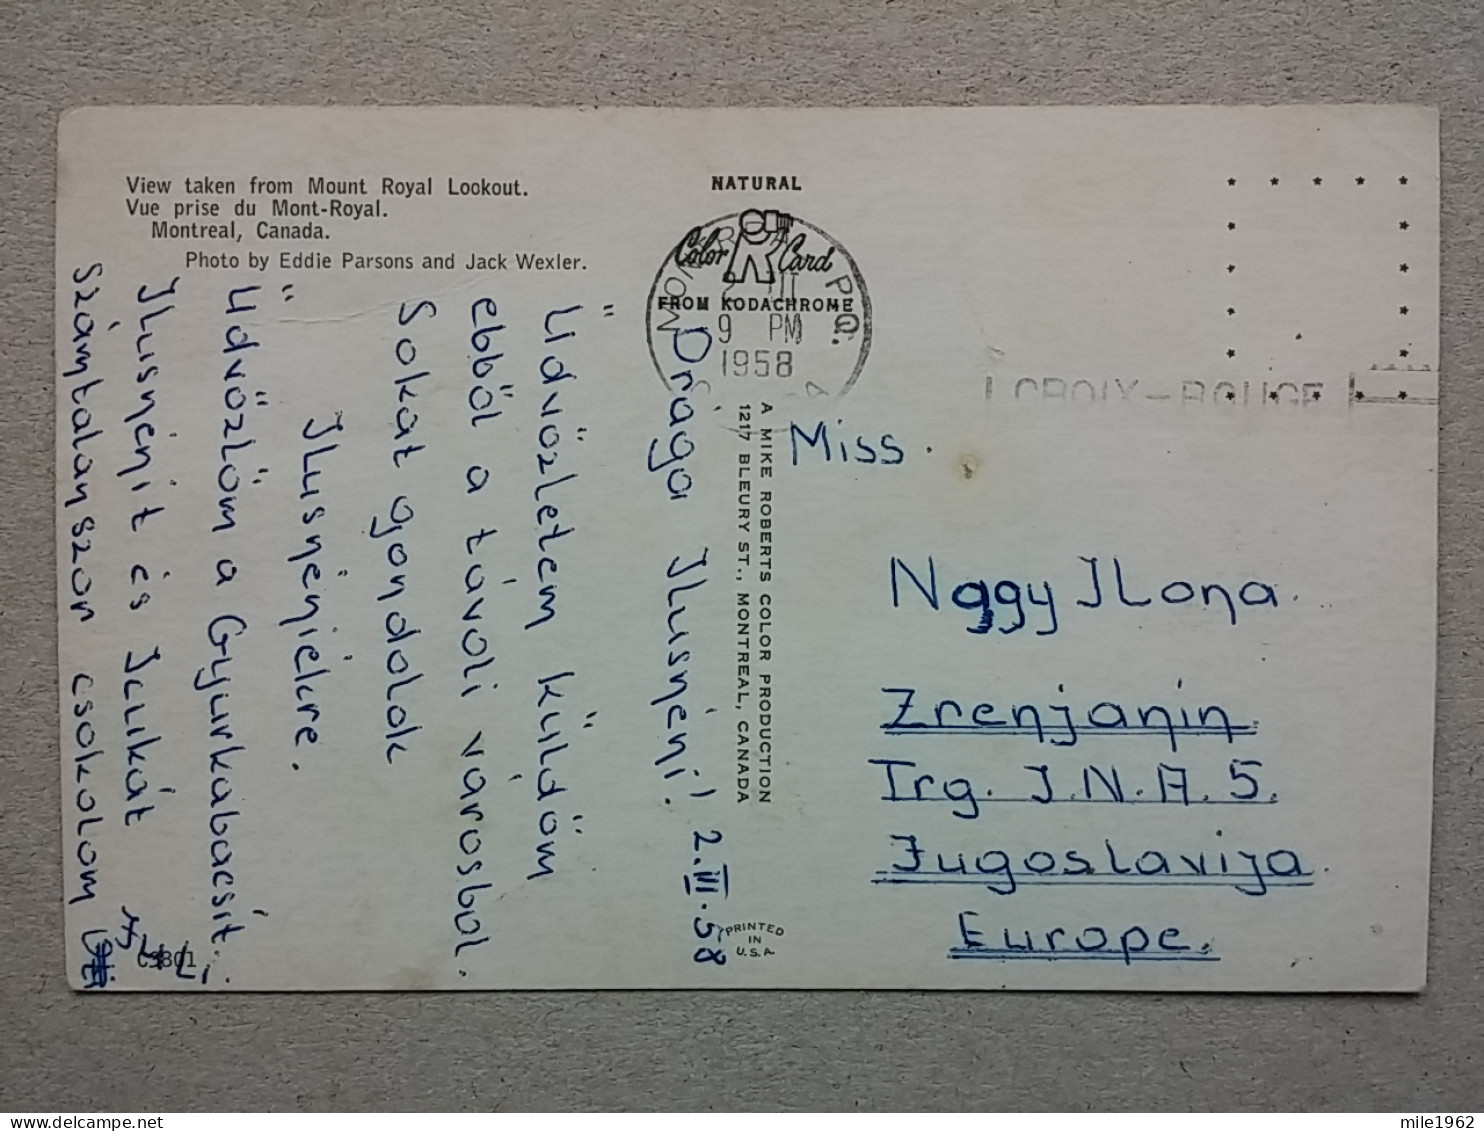 View taken from Mount Royal Lookout.
Vue prise du Mont-Royal.
Montreal, Canada.
Photo by Eddie Parsons and Jack Wexler.
NATURAL
Color Card
FROM KODACHROME
P.Q.
9 PM
1958
CROIX-ROUGE
A MIKE ROBERTS COLOR PRODUCTION
1217 BLEURY ST., MONTREAL, CANADA
PRINTED
IN
U.S.A.
C9801
2.III.58
Drága Ilusnéni!
Üdvözletem küldöm
ebből a távoli városbol.
Sokat gondolok
Ilusnéniekre.
Üdvözlöm a Gyurkabácsit.
Ilusnénit és Icukát
Számtalanszor csokolom
Miss.
Nagy ILona.
Zrenjanin.
Trg. J.N.A. 5.
Jugoslavija.
Europe.
mile1962